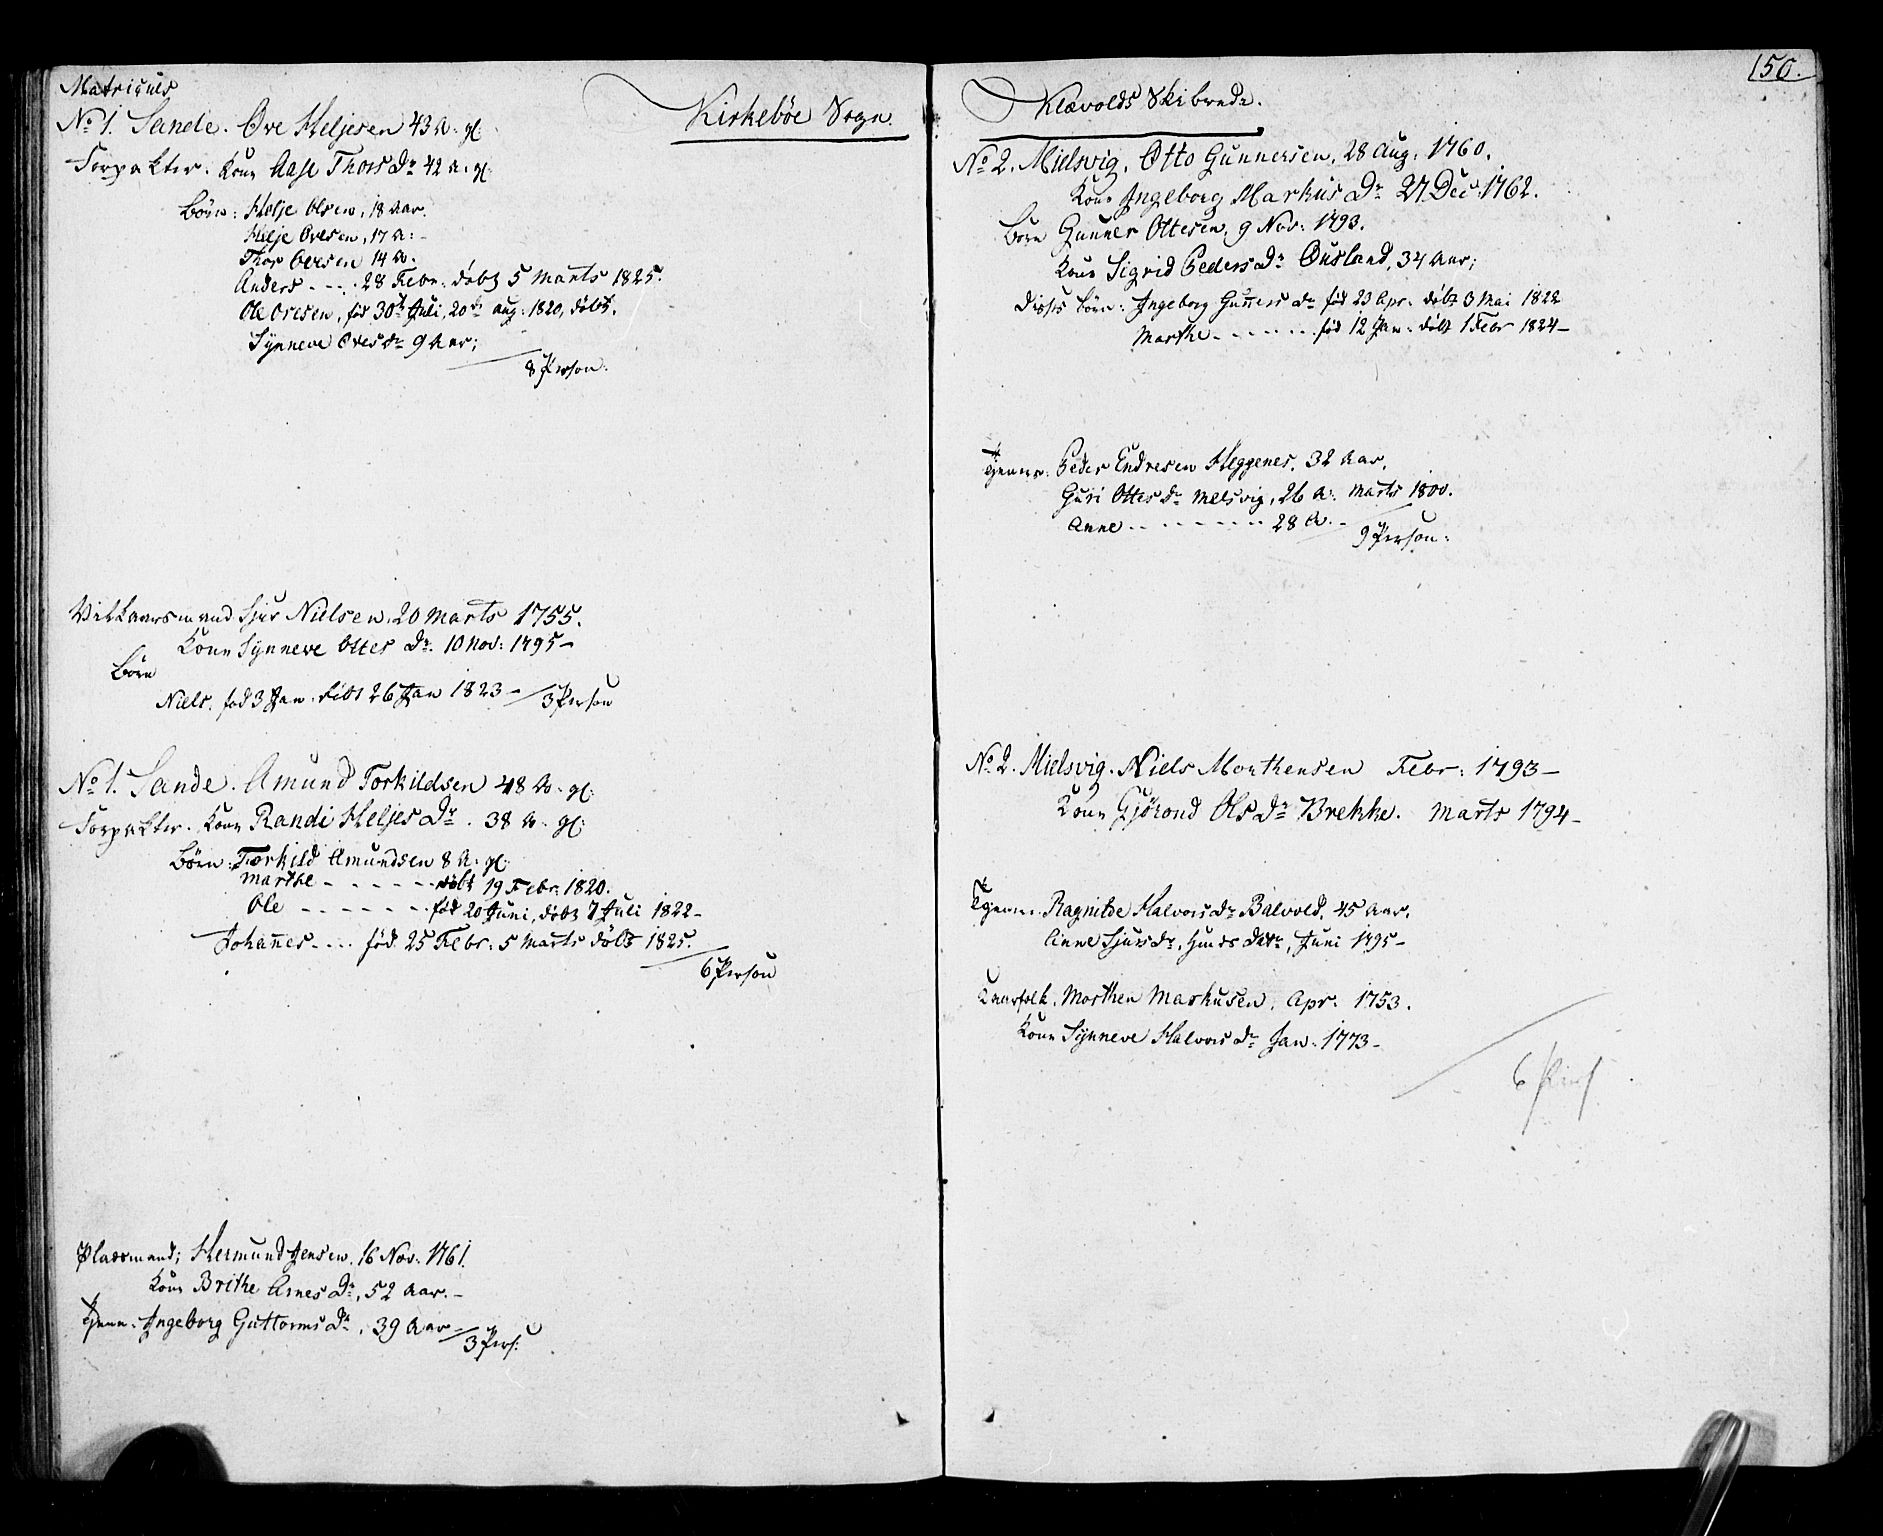 Matriculs
Kirkebøe Sogn.
No 1. Sande. Ove Heljesen 43 A. gl:
Forpakter. Kone Aase Thors Dr 42 A. gl:
Børn: Helje Olsen, 18 Aar.
Helje Ovesen, 17 A: -
Thor Ovesen 14 A.
Anders - - - - 28 Febr: døbt 5 Marts 1825.
Ole Ovesen, fød 30te Juli, 20de aug: 1820, døbt.
Synneve Oves Dr 9 Aar;
8 Person:
Vilkaarsmand Sjur Nielsen, 20 Marts 1755.
Kone Synneve Ottes Dr. 10 Nov: 1795 -
Børn
Niels, fød 3 Jan. døbt 26 Jan 1823 - 3 Person
No 1. Sande. Amund Torkildsen 48 A. gl:
Forpakter. Kone Randi Heljes Dr. 38 A. gl:
Børn: Torkild Amundsen 8 A: gl:
Marthe - - - - - - døbt 19 Febr: 1820.
Ole - - - - - - fød 20 Juni, døbt 7 Juli 1822 -
Johannes - - - fød 25 Febr: 5 Marts døbt 1825.
6 Person
Pladsmand; Hermund Jensen, 16 Nov: 1761.
Kone Brithe Arnes Dr, 52 Aar. -
Tjene: Ingeborg Guttorms Dr, 39 Aar - 3 Pers:
150.
Klævolds Skibrede.
No 2. Mielsvig. Otto Gunnersen, 28 Aug. 1760.
Kone Ingeborg Markus Dr 27 Dec: 1762.
Børn Gunner Ottesen, 9 Nov: 1793.
Kone Sigrid Peders Dr Ousland, 34 Aar;
Disses børn: Ingeborg Gunners Dr fød 23 Apr: døbt 3 Mai 1822
Marthe - - - - - - fød 12 Jan: døbt 1 Febr 1824 -
Tjener: Peder Endresen Heggenes, 32 Aar.
Guri Ottes Dr Melsvig, 26 A: Marts 1800.
Anne - - - - - - - - 28 A. -
9 Person:
No 2. Mielsvig. Niels Morthensen Febr: 1793 -
Kone Gjørond Ols Dr Brekke. Marts 1794 -
Tjener. Ragnilde Halvors Dr Bolvold, 45 Aar,
Anne Sjurs Dr, Datr, Juni 1795 -
Kaarfolk, Morthen Markusen, Apr: 1753.
Kone Synneve Halvors Dr Jan: 1773 -
6 Pers